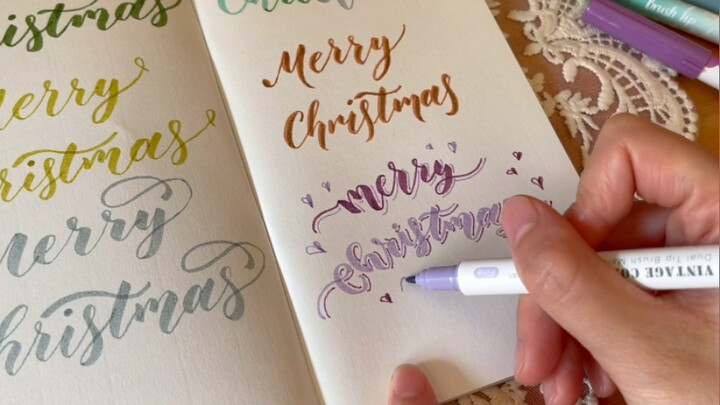 Merry
Christmas
Merry
Christmas
Merry
Christmas
merry
Christmas
Brush Tip
Fine
VINTAGE CO
Dual Tip Brush Ma